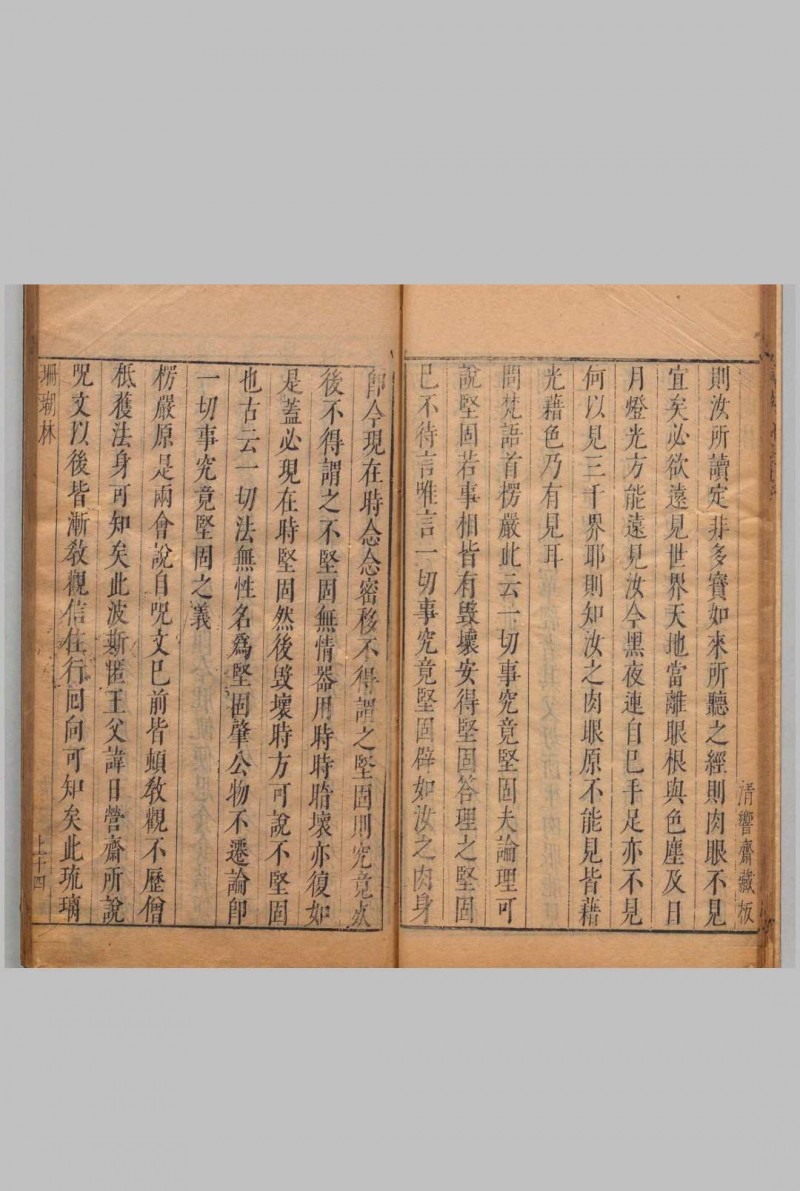 清響齋藏板
則汝所讀定非多寶如來所聽之經則肉眼不見
宜矣必欲遠見世界天地當離眼根與色塵及日
月燈光方能遠見汝今黑夜連自巳手足亦不見
何以見三千界耶則知汝之肉眼原不能見皆藉
光藉色乃有見耳
問梵語首楞嚴此云一切事究竟堅固夫論理可
說堅固若事相皆有毀壞安得堅固答理之堅固
巳不待言唯言一切事究竟堅固辟如汝之肉身
卽今現在時念念密移不得謂之堅固則究竟
後不得謂之不堅固無情器用時時暗壞亦復如
是蓋必現在時堅固然後毀壞時方可說不堅固
也古云一切法無性名爲堅固肇公物不遷論卽
一切事究竟堅固之義
楞嚴原是兩會說自呪文巳前皆頓敎觀不歷僧
秪獲法身可知矣此波斯匿王父諱日營齋所說
呪文以後皆漸敎觀信住行回向可知矣此琉璃
珊瑚林
上十四